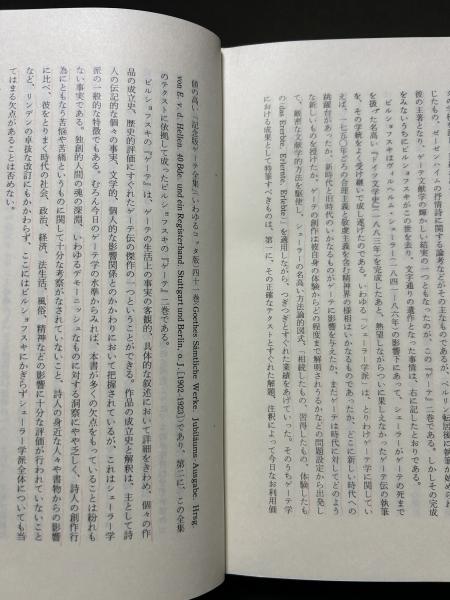 じたもの、ゼーゼンハイムの抒情詩に関する論考などがその主なものであるが、ベルリン転居後に執筆が始められ
彼の主著となり、ゲーテ文献学の輝かしい結実の一つともなったのが、この『ゲーテ』二巻である。しかしその完成
をみないうちにビルショフスキがこの世を去り、文字通りの遺作となった事情は、右に記したとおりである。
ビルショフスキはヴィルヘルム・シェーラー(一八四一—八六年)の影響下にあって、シェーラーがゲーテの死まで
を扱った名高い『ドイツ文学史』(一八八三年)を完成したあと、熱望しながらついに果しえなかったゲーテ伝の執筆
を、その学統をよく受け継いで成し遂げたのである。いわゆる「シェーラー学派」は、とりわけゲーテ学に関してい
えば、一七五〇年どろの合理主義と敬虔主義を含む精神界の様相はいかなるものであったか、どこに新しい時代への
跳躍台があったか、新時代と旧時代のいかなるものがゲーテに影響を与えたか、またゲーテは時代に対してどのよう
な新しいものを授けたか、ゲーテの創作は彼自身の体験からどの程度まで解明されうるかなどの問題設定から出発し
て、厳密な文献学的方法を駆使し、シェーラーの名高い方法論的図式、「相続したもの、習得したもの、体験したも
の (das Ererbte, Erlernte, Erlebte)」を適用しながら、つぎつぎとすぐれた業績をあげていった。そのうちゲーテ学
における成果として特筆すべきものは、第一に、その正確なテクストとすぐれた解題、注釈によって今日なお利用価
値の高い『記念版ゲーテ全集』(いわゆるコッタ版)四十一巻 (Goethes Sämtliche Werke. Jubiläums Ausgabe. Hrsg.
von E. v. d. Hellen. 40 Bde. und ein Registerband. Stuttgart und Berlin. o. J. [1902-1923]) であり、第二に、この全集
のテクストに依拠して成ったビルショフスキの『ゲーテ』二巻である。
ビルショフスキの『ゲーテ』は、ゲーテの生活上の事実の客観的、具体的な叙述において詳細をきわめ、個々の作
品の成立史、歴史的評価にすぐれたゲーテ伝の傑作の一つということができる。作品の成立史と解釈は、主として詩
人の伝記的な個々の事実、文学的、個人的な影響関係とのかかわりにおいて把握されているが、これはシェーラー学
派の一般的な特徴でもある。むろん今日のゲーテ学の水準からみれば、本書が多くの欠点をもっていることは紛れも
ない事実である。独創的人間の魂の深淵、いわゆるデモーニッシュなものに対する洞察にやや乏しく、詩人の創作行
為にともなう苦悩や苦痛というものに関して十分な考察がなされていないこと、詩人の身近な人々や書物からの影響
に比べ、彼をとりまく時代の社会、政治、経済、法生活、風俗、精神などの影響に十分な評価が行われていないこと
など、リンデンの卓抜な改訂にもかかわらず、ここにはビルショフスキにかぎらずシェーラー学派全体についても当
てはまる欠点があることは否めない。